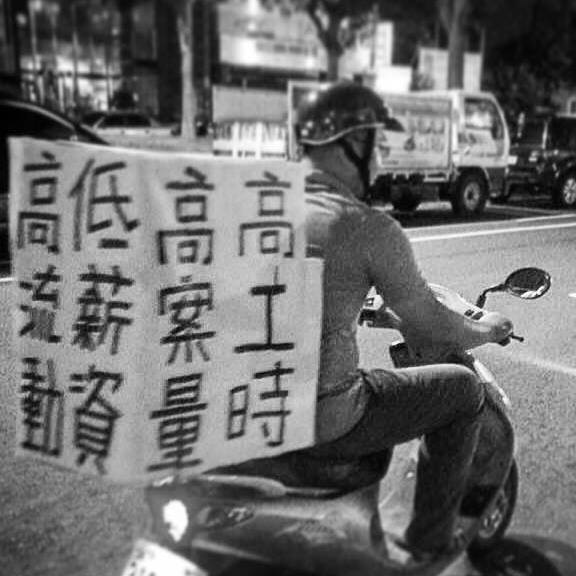 高工時
高案量
低薪資
高流動